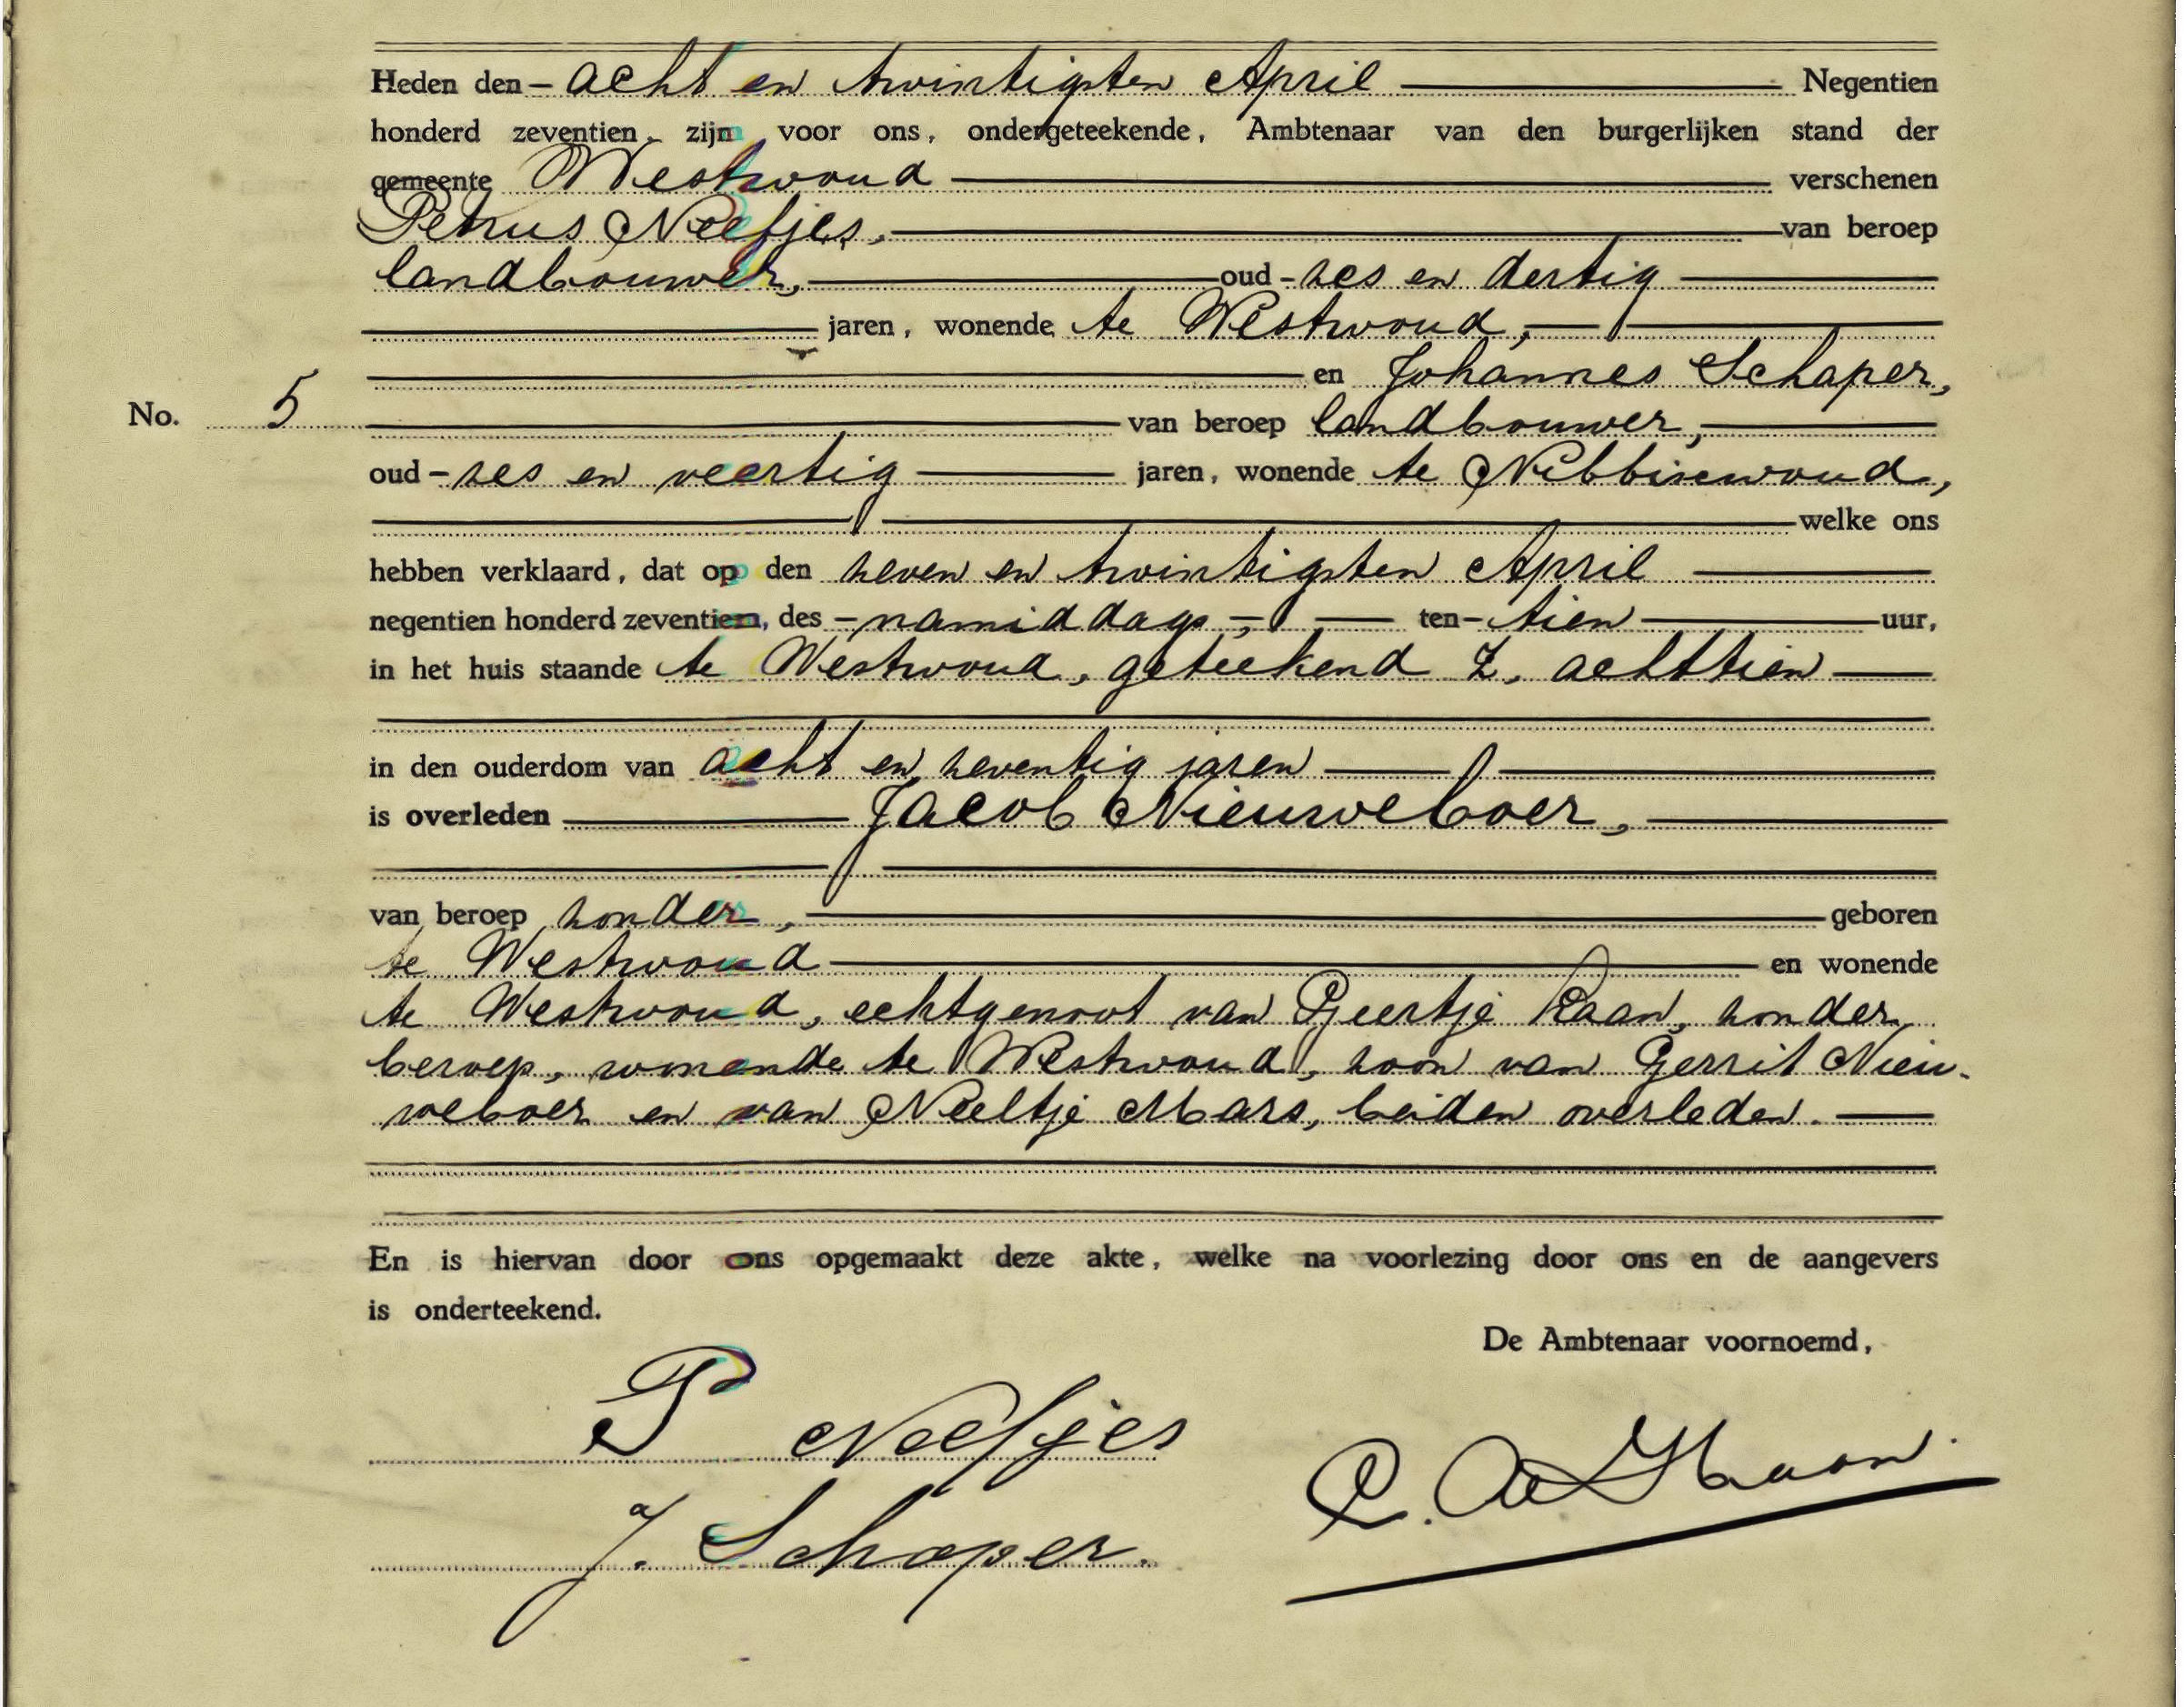 Heden den – acht en twintigsten April Negentien
honderd zeventien, zijn voor ons, ondergeteekende, Ambtenaar van den burgerlijken stand der
gemeente Westwoud verschenen
Petrus Neefjes, van beroep
landbouwer, oud – zes en dertig
jaren, wonende te Westwoud,
en Johannes Schaper,
No. 5 van beroep landbouwer,
oud – zes en veertig jaren, wonende te Nibbixwoud,
welke ons
hebben verklaard, dat op den zeven en twintigsten April
negentien honderd zeventien, des – namiddags –, ten – tien uur,
in het huis staande te Westwoud, geteekend Z, achttien
in den ouderdom van acht en zeventig jaren
is overleden Jacob Nieuweboer,
van beroep zonder, geboren
te Westwoud en wonende
te Westwoud, echtgenoot van Geertje Kaan, zonder
beroep, wonende te Westwoud, zoon van Gerrit Nieu-
weboer en van Neeltje Mars, beiden overleden.
En is hiervan door ons opgemaakt deze akte, welke na voorlezing door ons en de aangevers
is onderteekend.
De Ambtenaar voornoemd,
P Neefjes
C. de Haan.
J. Schaper.